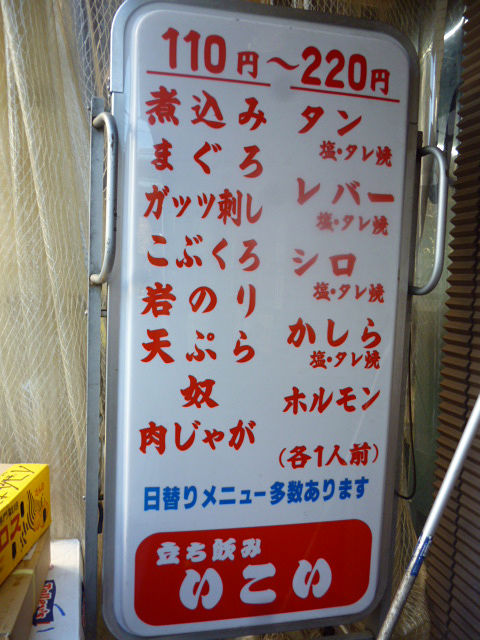 110円～220円
煮込み
まぐろ
ガッツ刺し
こぶくろ
岩のり
天ぷら
奴
肉じゃが
タン
塩・タレ焼
レバー
塩・タレ焼
シロ
塩・タレ焼
かしら
塩・タレ焼
ホルモン
(各1人前)
日替りメニュー多数あります
立ち飲み
いこい